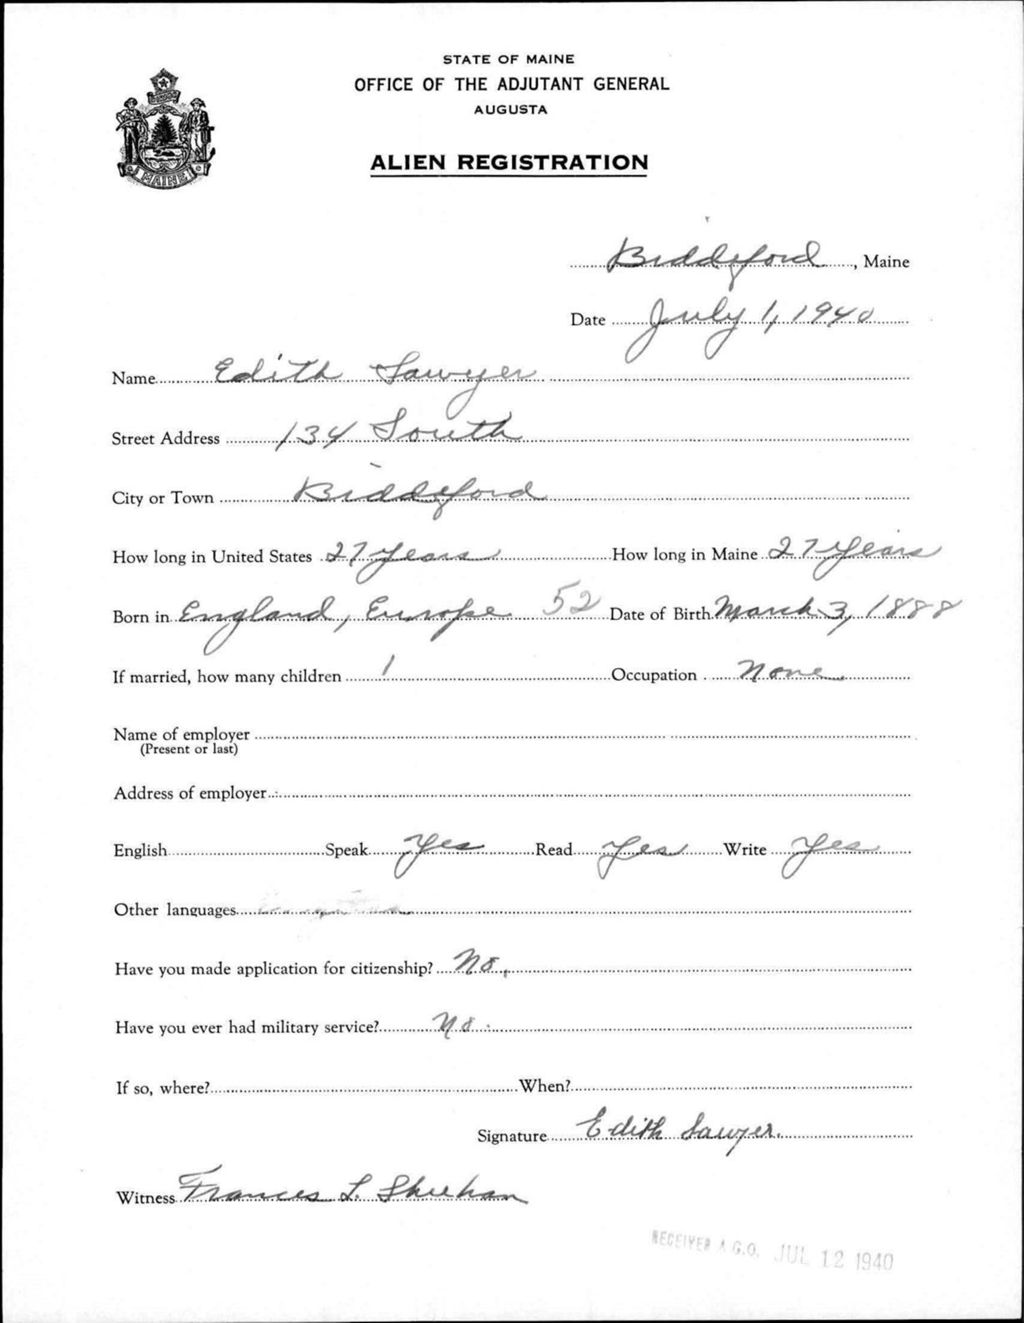 STATE OF MAINE
OFFICE OF THE ADJUTANT GENERAL
AUGUSTA
MAINE
ALIEN REGISTRATION
Biddeford, Maine
Date July 1, 1940
Name Edith Sawyer
Street Address 134 South
City or Town Biddeford
How long in United States 27 years How long in Maine 27 years
Born in England, Europe 52 Date of Birth March 3, 1888
If married, how many children 1 Occupation None
Name of employer
(Present or last)
Address of employer
English Speak Yes Read Yes Write Yes
Other languages
Have you made application for citizenship? No.
Have you ever had military service? No.
If so, where? When?
Signature Edith Sawyer.
Witness Frances L. Sheehan
RECEIVED A.G.O. JUL 12 1940